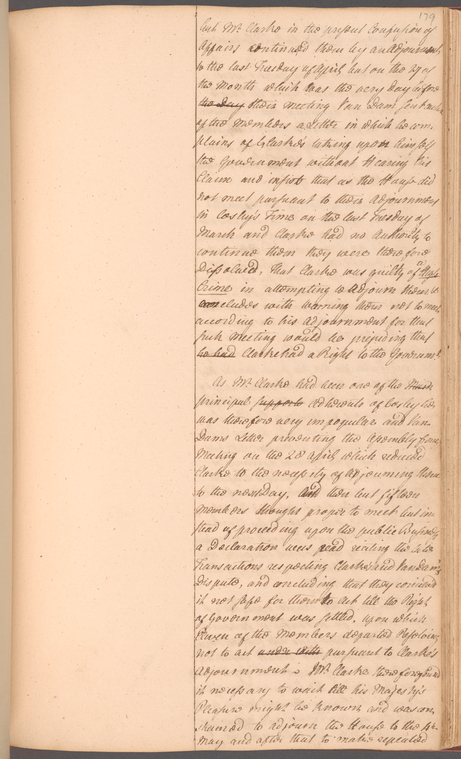 179
but Mr. Clarke in the present Confusion of
Affairs continued them by an Adjournmt
to the last Tuesday of April, but on the 27 of
the Month which was the very day before
the day their meeting Van Dam sent
of the Members a Letter in which he com
plains of Clarke's taking upon himself
the Government without Hearing his
Claim and insists that as the House did
not meet pursuant to their Adjournment
in Cosby's Time on the last Tuesday of
March and Clarke had no Authority to
continue them they were therefore
Dissolved, That Clarke was guilty of a High
Crime in attempting to Adjourn them &
concludes with warning them not to meet
according to his Adjournment for that
such Meeting would be
he had Clarke had a Right to the Governmt.
As Mr. Clarke had been one of the
principal supports adherents of Cosby he
was therefore very impopular and Van
Dams Letter preventing the Assembly from
Meeting on the 28 April which reduced
Clarke to the necessity of Adjourning them
to the next day, And then but fifteen
Members thought proper to meet but in
stead of proceeding upon the public Business
a Declaration was read reciting the late
Transactions respecting Clarke and Van Dam's
Dispute, and concluding that they conceived
it not safe for them to act till the Right
of Government was settled, upon which
Seven of the Members departed
not to act under with pursuant to Clarke's
Adjournment. Mr. Clarke therefore found
it necessary to wait till his Majesty's
Pleasure might be known and was con
strained to adjourn the House to the
May and after that to make repeated